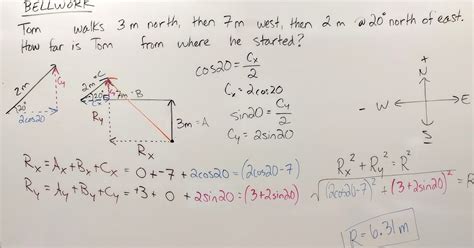 BELLWORK
Tom walks 3m north, then 7m west, then 2m @ 20° north of east.
How far is Tom from where he started?
2m
Cy
20°
2cos20
2m
C
20°
Cx
7m - B
3m = A
Ry
Rx
cos20 = Cx/2
Cx = 2cos20
sin20 = Cy/2
Cy = 2sin20
N
W
E
S
Rx = Ax + Bx + Cx = 0 + -7 + 2cos20 = (2cos20-7)
Ry = Ay + By + Cy = +3 + 0 + 2sin20 = (3+2sin20)
Rx² + Ry² = R²
√(2cos20-7)² + (3+2sin20)² = R
R = 6.31m